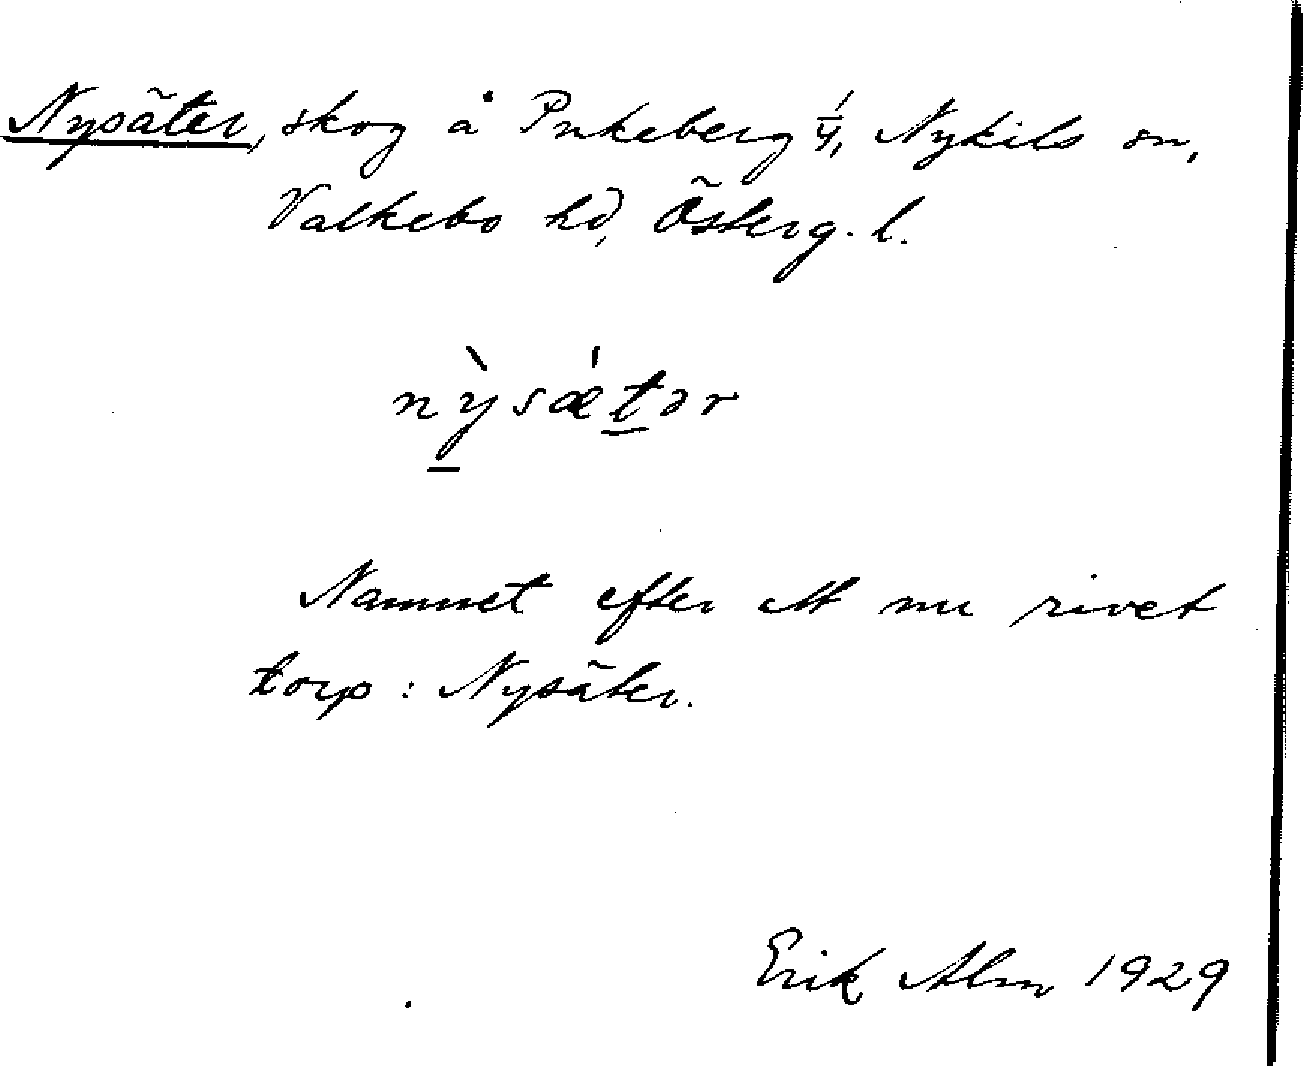 Nysäter, skog å Pukeberg 1/4, Nykils sn,
Valkebo hd, Österg. l.
nỳsǽtər
Namnet efter ett nu rivet
torp: Nysäter.
Erik Alm 1929